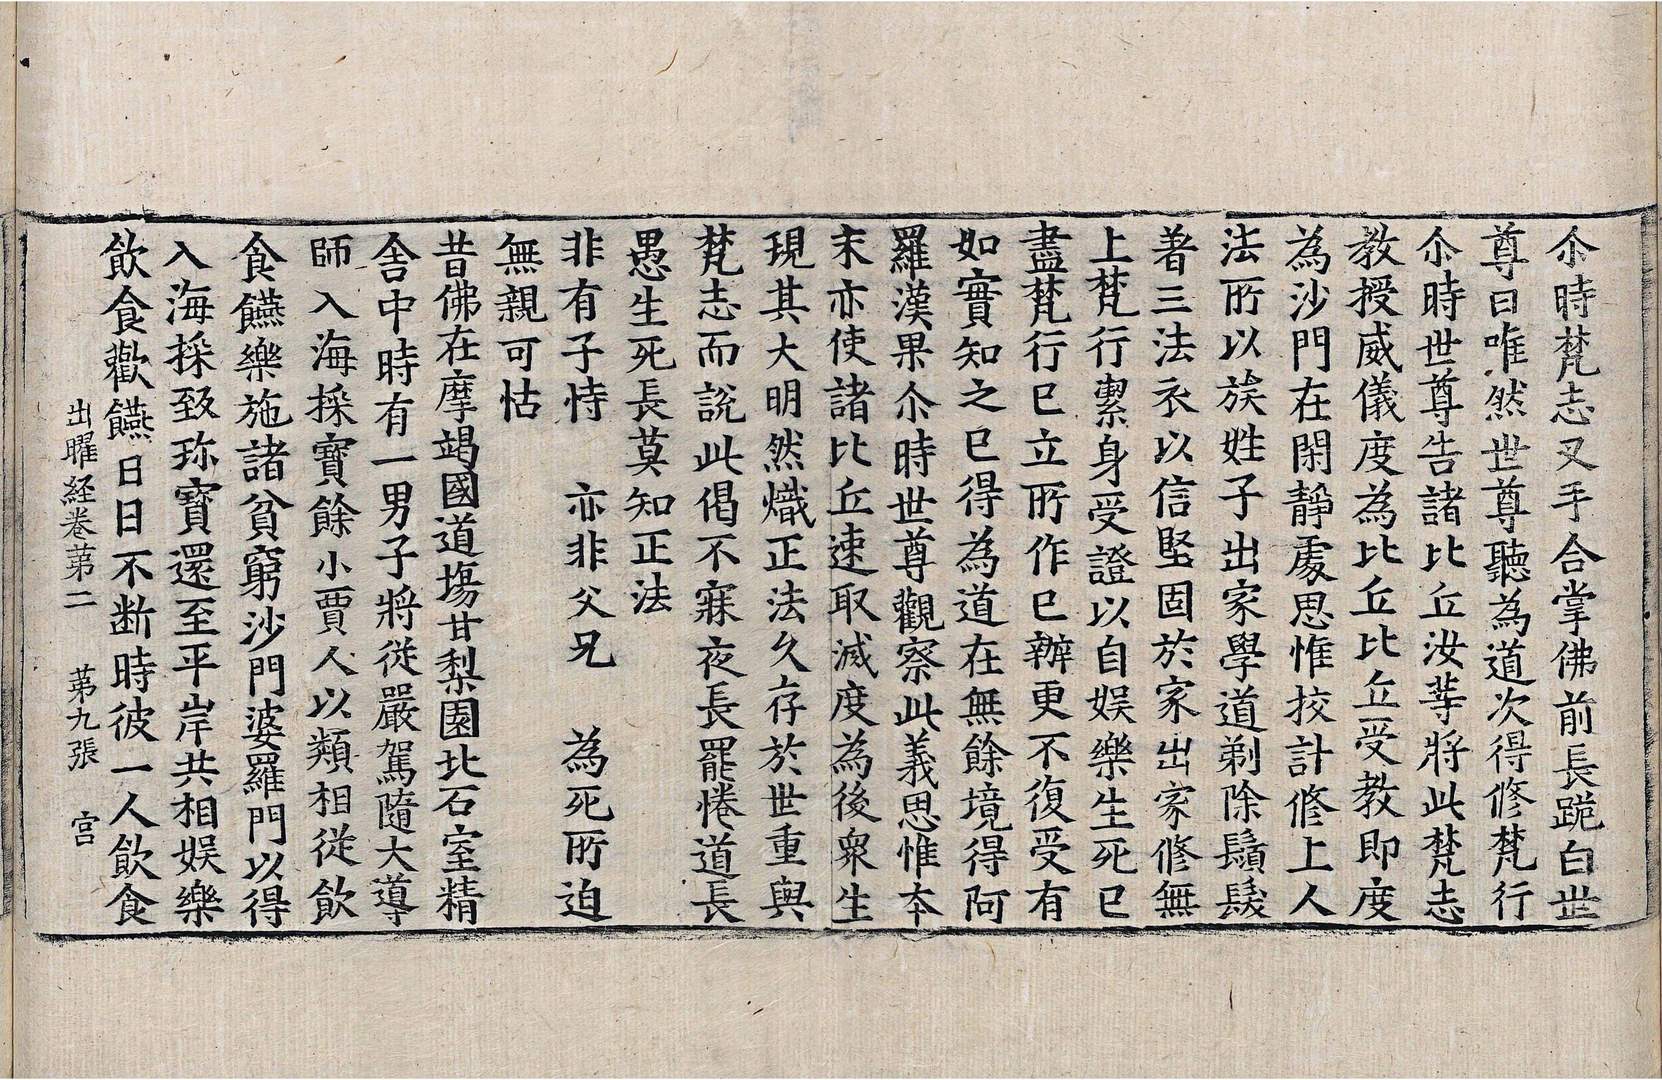 尒時梵志叉手合掌佛前長跪白世
尊曰唯然世尊聽為道次得修梵行
尒時世尊告諸比丘汝䓁將此梵志
教授威儀度為比丘比丘受教即度
為沙門在閑靜處思惟挍計修上人
法所以族姓子出家學道剃除鬚髮
著三法衣以信堅固於家出家修無
上梵行潔身受證以自娛樂生死已
盡梵行已立所作已辦更不復受有
如實知之已得為道在無餘境得阿
羅漢果尒時世尊觀察此義思惟本
末亦使諸比丘速取滅度為後衆生
現其大明然熾正法久存於世重與
梵志而說此偈不寐夜長罷惓道長
愚生死長莫知正法
非有子恃　亦非父兄　為死所迫
無親可怙
昔佛在摩竭國道塲甘梨園北石室精
舍中時有一男子將從嚴駕隨大導
師入海採寶餘小賈人以類相從飲
食饍樂施諸貧窮沙門婆羅門以得
入海採致珎寶還至平岸共相娛樂
飲食歡饍日日不断時彼一人飲食
出曜経卷苐二　苐九張　宫